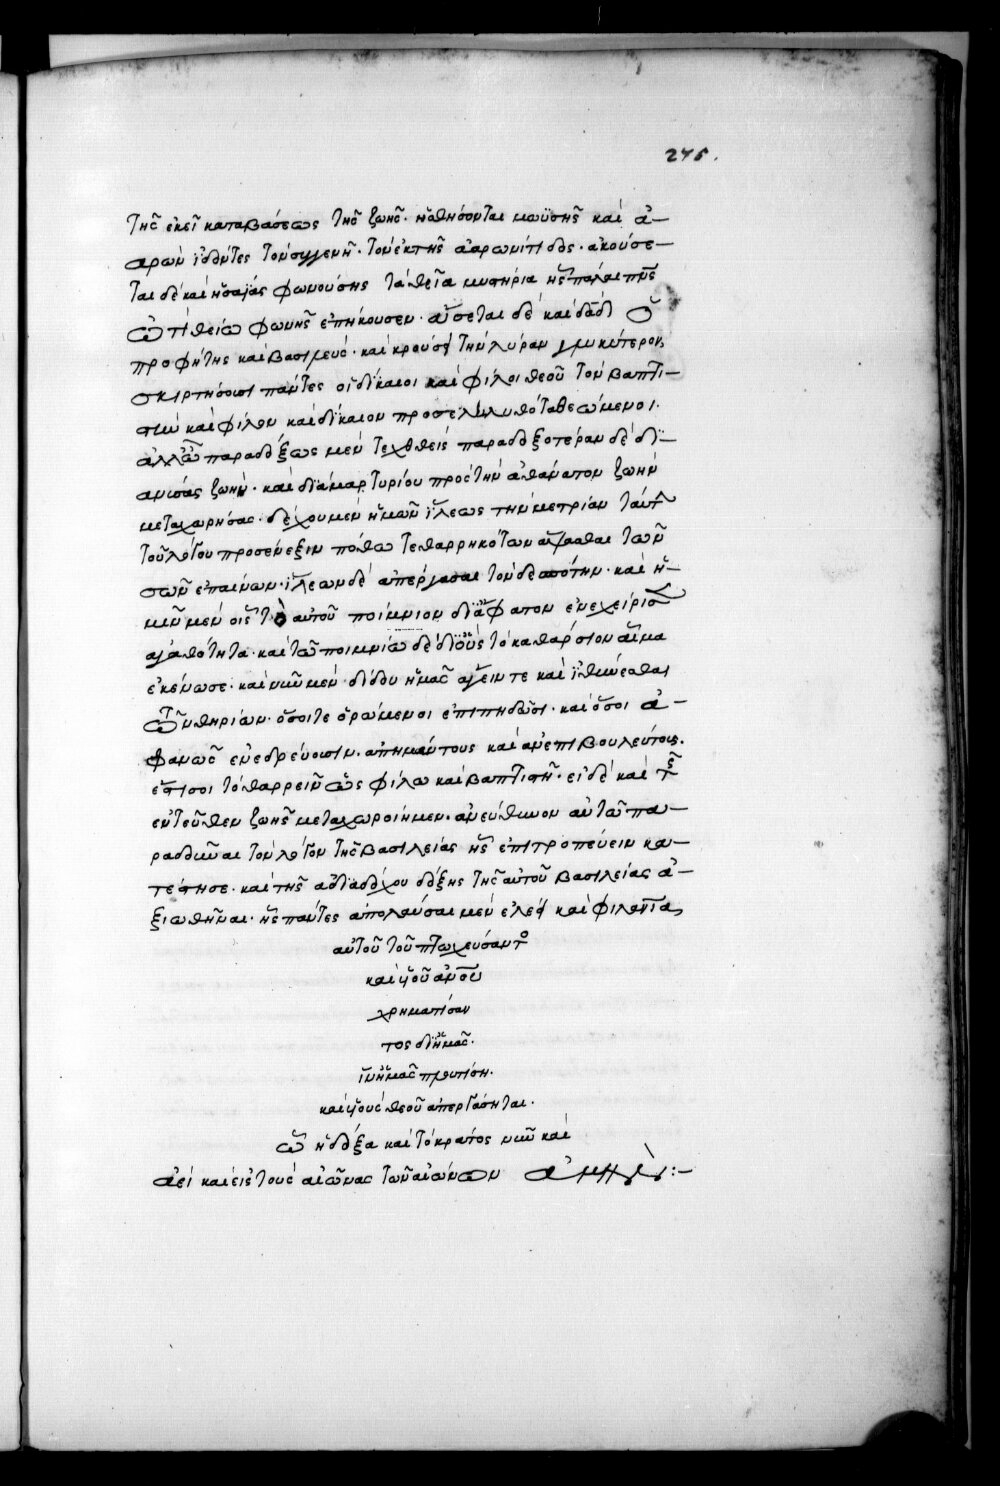 275.
τῆς ἐκεῖ καταβάσεως τῆς ζωῆς· ἡσθήσονται μωϋσῆς καὶ ἀ-
αρὼν ἰδόντες τὸν συγγενῆ· τὸν ἐκ τῆς ἀαρωνίτιδος· ἀκούσε-
ται δὲ καὶ ἡσαΐας φωνούσης τὰ θεῖα μυστήρια ἧς πάλαι πνς
ὠτὶ θείω φωνῆς ἐπήκουσεν· ἄσεται δὲ καὶ δαδ ὁ
προφήτης καὶ βασιλεὺς· καὶ κρούσει τὴν λύραν γλυκύτερον,
σκιρτήσουσι πάντες οἱ δίκαιοι καὶ φίλοι θεοῦ τὸν βαπτι-
στὴν καὶ φίλον καὶ δίκαιον προσεληλυθότα θεώμενοι.
ἀλλ' ὦ παραδόξως μὲν τεχθεὶς παραδοξοτέραν δὲ δι-
ανύσας ζωὴν· καὶ διὰ μαρτυρίου πρὸς τὴν ἀθάνατον ζωὴν
μεταχωρήσας· δέχου μὲν ἡμῶν ἵλεως τὴν μετρίαν ταύτην
τοῦ λόγου προσένεξιν πόθω τεθαρρηκότων ἅψασθαι τῶν
σῶν ἐπαίνων· ἵλεων δὲ ἀπέργασαι τὸν δεσπότην· καὶ ἡ-
μῖν μὲν οἷς τὸ αὐτοῦ ποίμνιον δι' ἄφατον ἐνεχείρισεν
ἀγαθότητα· καὶ τῶ ποιμνίω δὲ δι' οὓς τὸ καθάρσιον αἷμα
ἐκένωσε· καὶ νῦν μὲν δίδου ἡμᾶς ἄγειν τε καὶ ἰθύνεσθαι
τῶν θηρίων· ὅσοι τε ὁρώμενοι ἐπιπηδῶσι· καὶ ὅσοι ἀ-
φανῶς ἐνεδρεύουσιν· ἀπημάντους καὶ ἀνεπιβουλεύτους.
ἔστι σοι τὸ θαρρεῖν ὡς φίλω καὶ βαπτιστῆ· εἰ δὲ καὶ τῆς
ἐντεῦθεν ζωῆς μεταχωροίημεν· ἀνεύθυνον αὐτῶ πα-
ραδοῦναι τὸν λόγον τῆς βασιλείας ἧς ἐπιτροπεύειν κα-
τέστησε· καὶ τῆς ἀδιαδόχου δόξης τῆς αὐτοῦ βασιλείας ἀ-
ξιωθῆναι· ἧς πάντες ἀπολαύσαιμεν ἐλέει καὶ φιλανία,
αὐτοῦ τοῦ πτωχεύσαντος
καὶ υἱοῦ ἀνου
χρηματίσαν
τος δι' ἡμᾶς·
ἵν' ἡμᾶς πλουτίση·
καὶ υἱοὺς θεοῦ ἀπεργάσηται·
ὧ ἡ δόξα καὶ τὸ κράτος νῦν καὶ
ἀεὶ καὶ εἰς τοὺς αἰῶνας τῶν αἰώνων ἀμήν:-